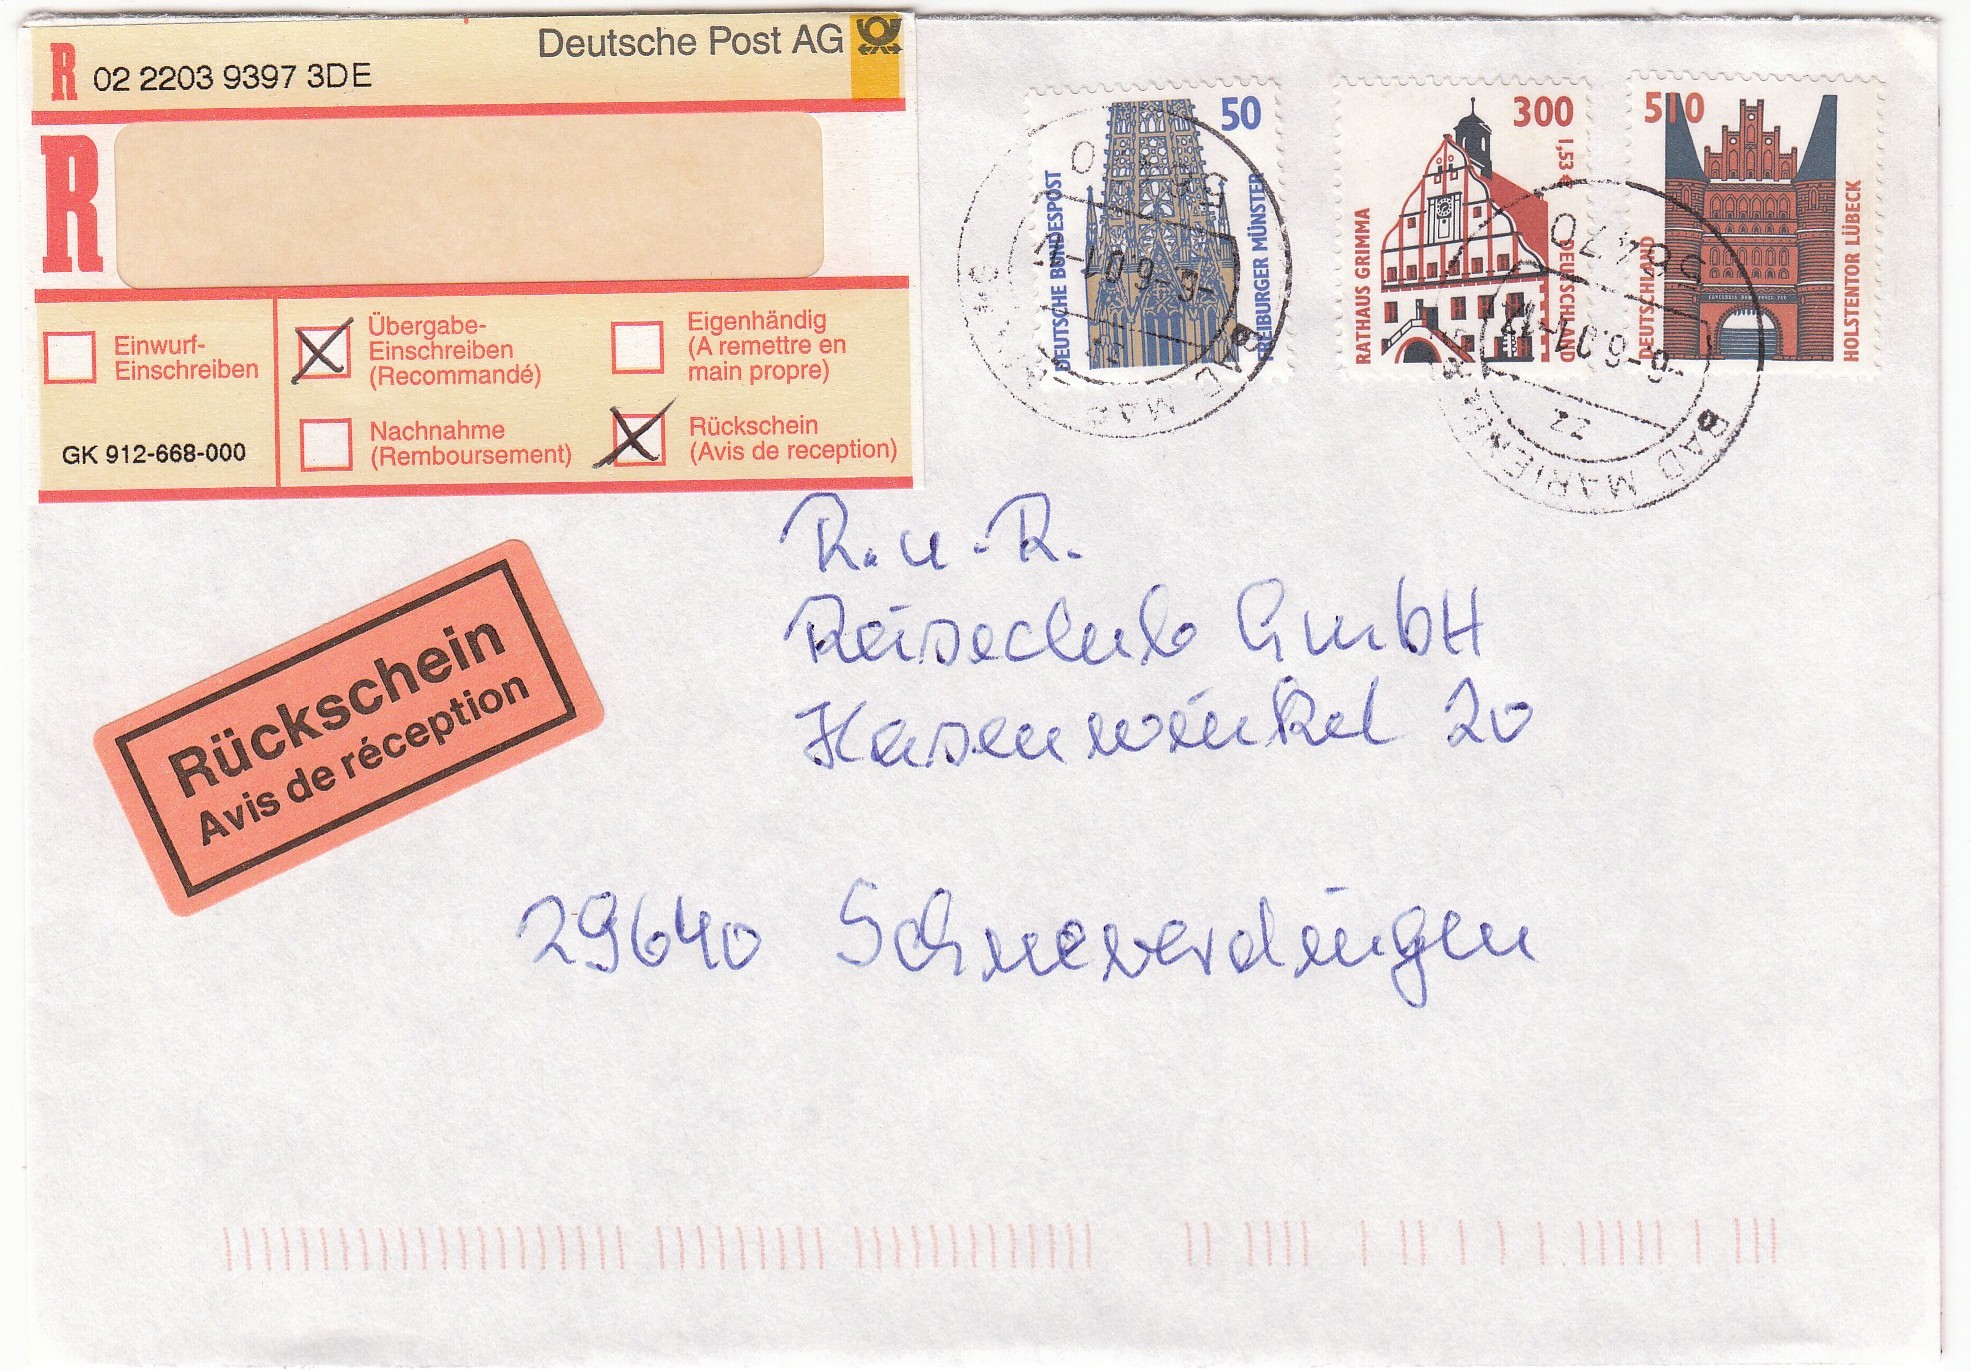 Deutsche Post AG
R 02 2203 9397 3DE
R
Einwurf-
Einschreiben
GK 912-668-000
Übergabe-
Einschreiben
(Recommandé)
Eigenhändig
(A remettre en
main propre)
Nachnahme
(Remboursement)
Rückschein
(Avis de reception)
50
DEUTSCHE BUNDESPOST
FREIBURGER MÜNSTER
300
1,53 €
RATHAUS GRIMMA
DEUTSCHLAND
510
DEUTSCHLAND
HOLSTENTOR LÜBECK
56470
-6-6.01-12
zz
BAD MARIENBERG
R. u. R.
Reiseclub GmbH
Hasenwinkel 20
29640 Schneverdingen
Rückschein
Avis de réception